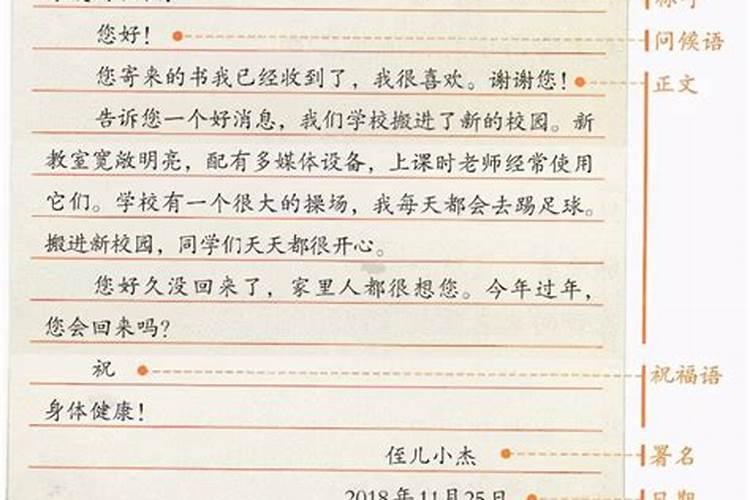 您好！ 问候语
您寄来的书我已经收到了，我很喜欢。谢谢您！ 正文
告诉您一个好消息，我们学校搬进了新的校园。新
教室宽敞明亮，配有多媒体设备，上课时老师经常使用
它们。学校有一个很大的操场，我每天都会去踢足球。
搬进新校园，同学们天天都很开心。
您好久没回来了，家里人都很想您。今年过年，
您会回来吗？
祝 祝福语
身体健康！
侄儿小杰 署名
2018年11月25日 日期